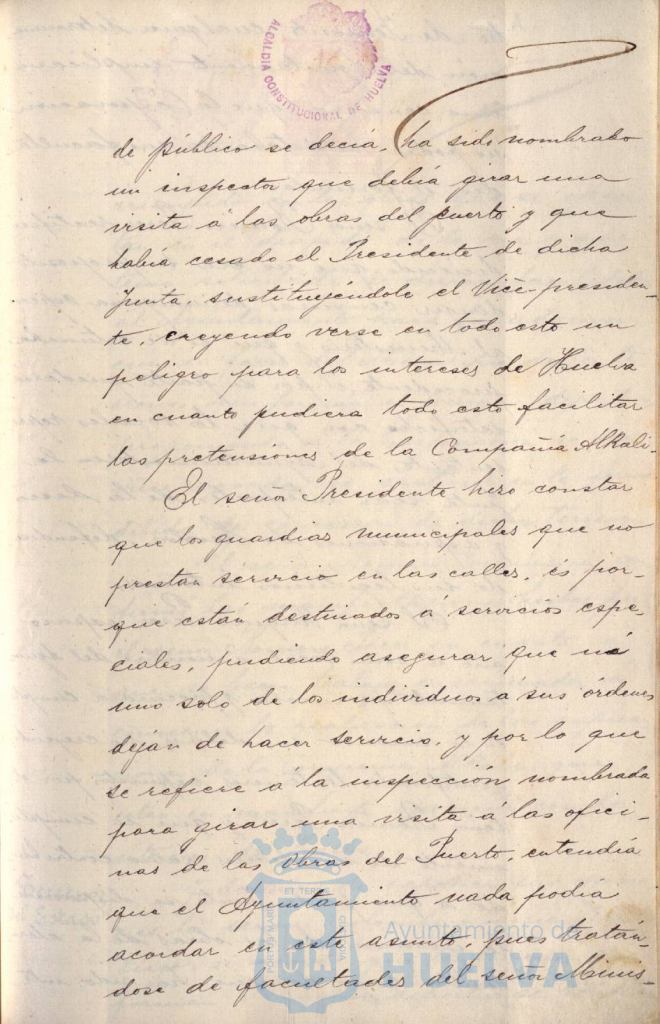 ALCALDIA CONSTITUCIONAL DE HUELVA
de público se decía, ha sido nombrabo
un inspector que debía girar una
visita á las obras del puerto y que
había cesado el Presidente de dicha
Junta, sustituyéndole el Vice-presiden-
te, creyendo verse en todo esto un
peligro para los intereses de Huelva
en cuanto pudiera todo esto facilitar
las pretensiones de la Compañía Alkali-
El señor Presidente hizo constar
que los guardias municipales que no
prestan servicio en las calles, és por-
que están destinados á servicios espe-
ciales, pudiendo asegurar que ni
uno solo de los individuos á sus órdenes
dejan de hacer servicio, y por lo que
se refiere á la inspección nombrada
para girar una visita á las ofici-
nas de las Obras del Puerto, entendía
que el Ayuntamiento nada podía
acordar en este asunto, pues tratán-
dose de facultades del señor Minis-
Ayuntamiento de
HUELVA